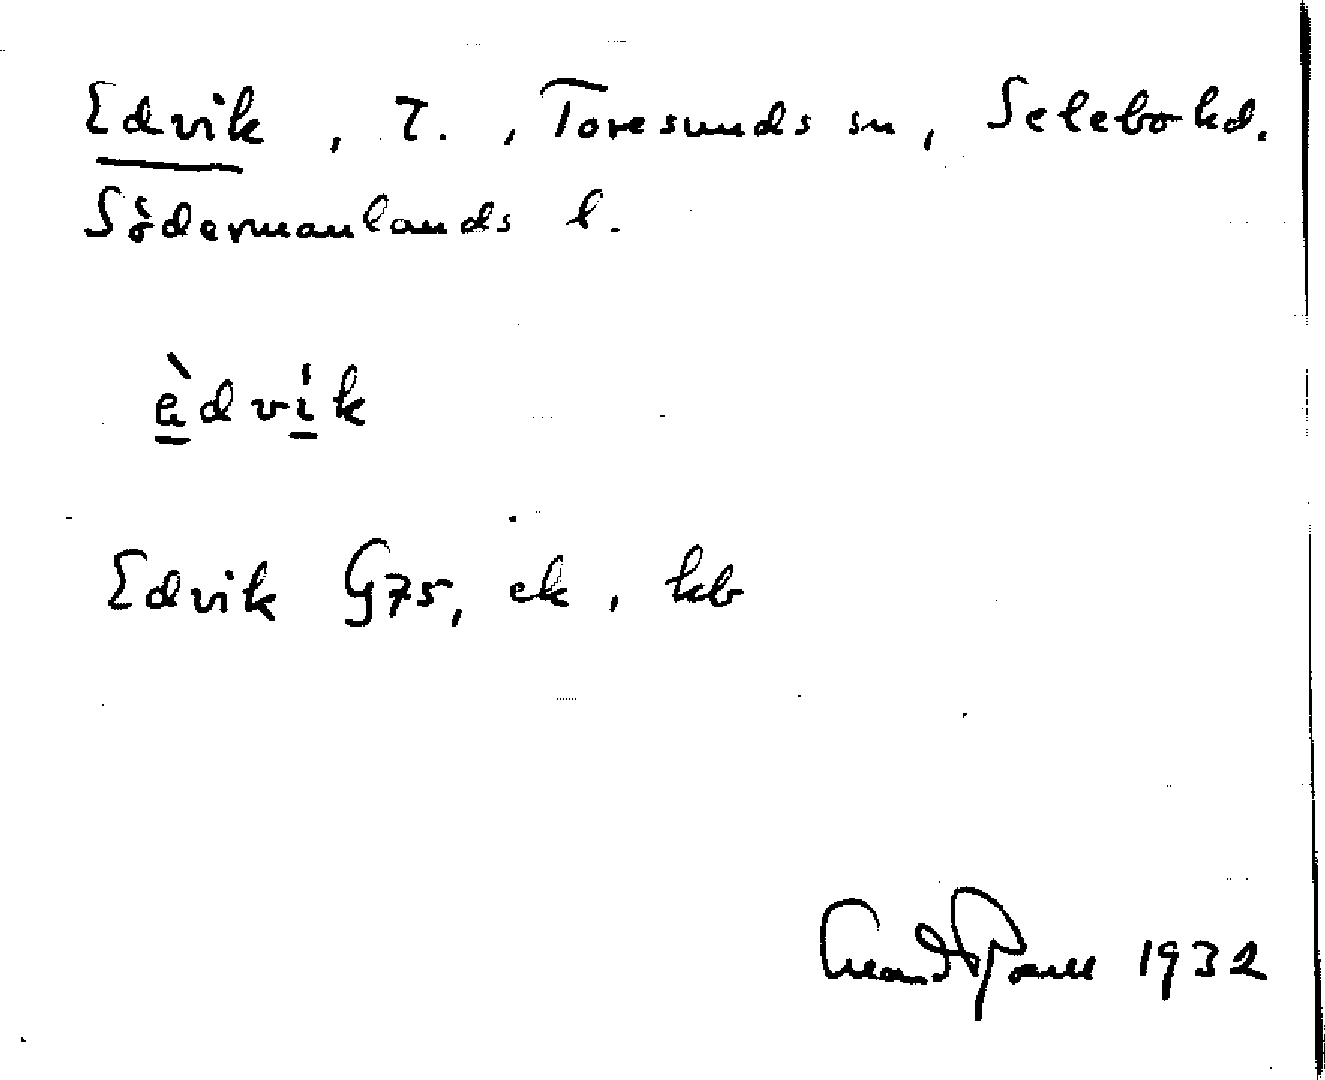 Edvik, T., Toresunds sn, Selebo hd.
Södermanlands l.
èdvík
Edvik G75, ek, kb
1932